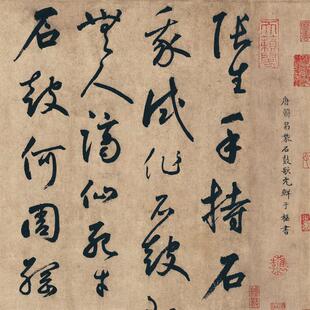 唐韓昌黎石鼓歌元鮮于樞書
張生手持石
我試作石鼓
無人謫仙死才
石鼓何周綱